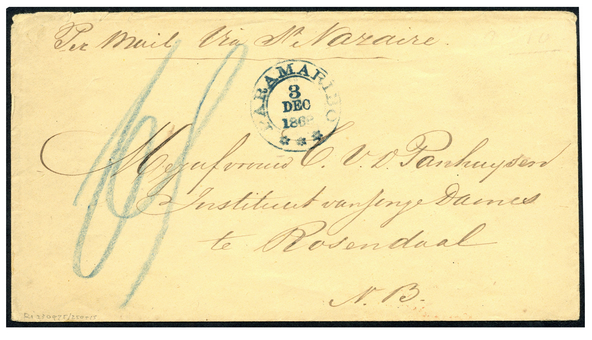 Per Mail Via St. Nazaire.
PARAMARIBO
3
DEC
186
Mejufvrouw C. V. D. Panhuysen
Instituut van Jonge Dames
te Rosendaal
N. B.